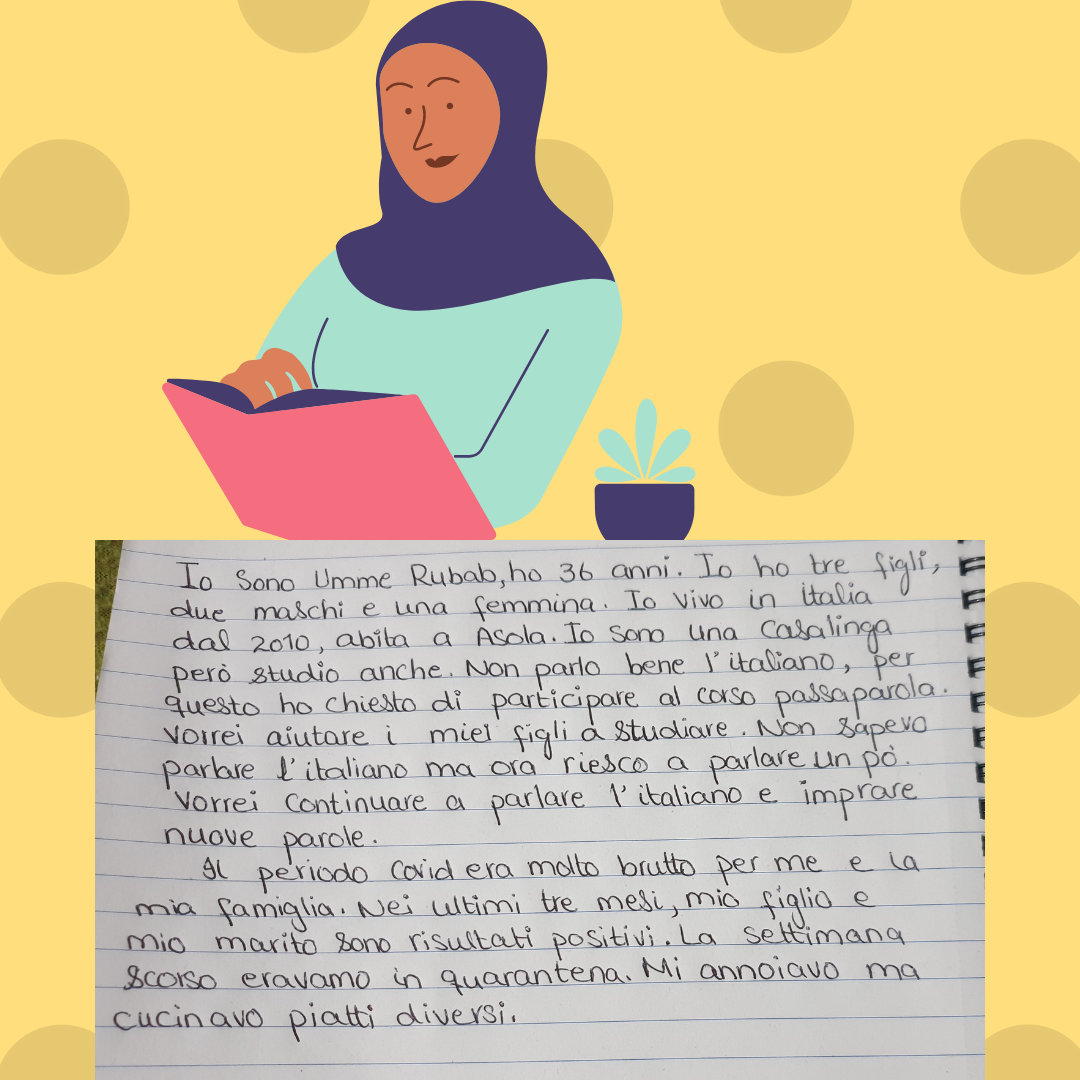 Io Sono Umme Rubab, ho 36 anni. Io ho tre figli,
due maschi e una femmina. Io vivo in italia
dal 2010, abita a Asola. Io sono una Casalinga
però studio anche. Non parlo bene l'italiano, per
questo ho chiesto di participare al corso passaparola.
Vorrei aiutare i miei figli a studiare. Non sapevo
parlare l'italiano ma ora riesco a parlare un pò.
Vorrei continuare a parlare l'italiano e imprare
nuove parole.
Il periodo Covid era molto brutto per me e la
mia famiglia. Nei ultimi tre mesi, mio figlio e
mio marito sono risultati positivi. La settimana
scorso eravamo in quarantena. Mi annoiavo ma
cucinavo piatti diversi.